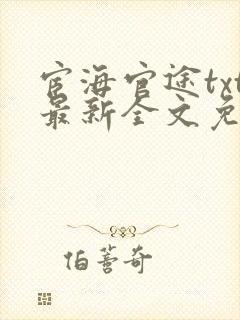 宦海官途txt
最新全文免
伯蓍奇